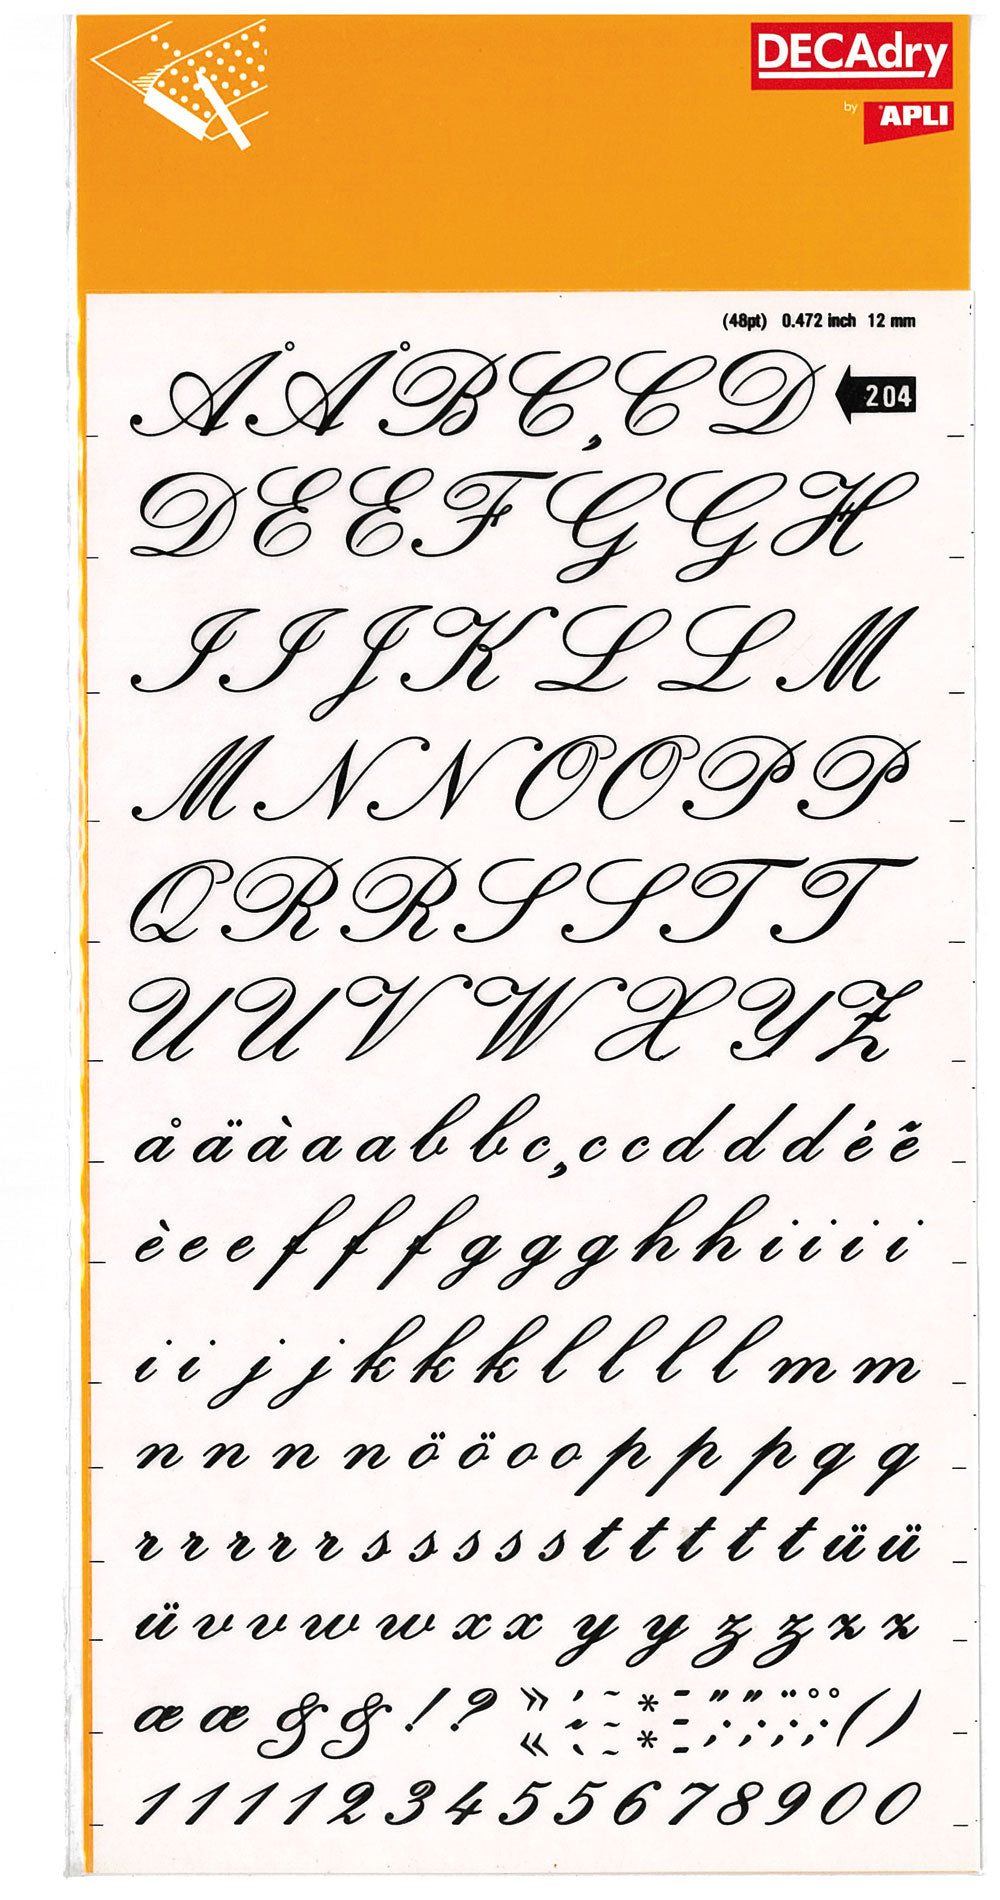 DECAdry
by APLI
(48pt) 0.472 inch 12 mm
Å Å B C , C D 204
D E E F G G H
I I J K L L M
M N N O O P P
Q R R S S T T
U U V W X Y Z
å ä à a a b b c , c c d d d é ẽ
è e e f f f g g g h h i i i i
i i j j k k k l l l l m m
n n n n ö ö o o p p p q q
r r r r r s s s s s t t t t t ü ü
ü v v w w x x y y z z z z
æ æ & & ! ? » ' ~ * - " " ¨ ° ° ( )
« ~ * = ; ; ; ;
1 1 1 1 2 3 4 5 5 6 7 8 9 0 0